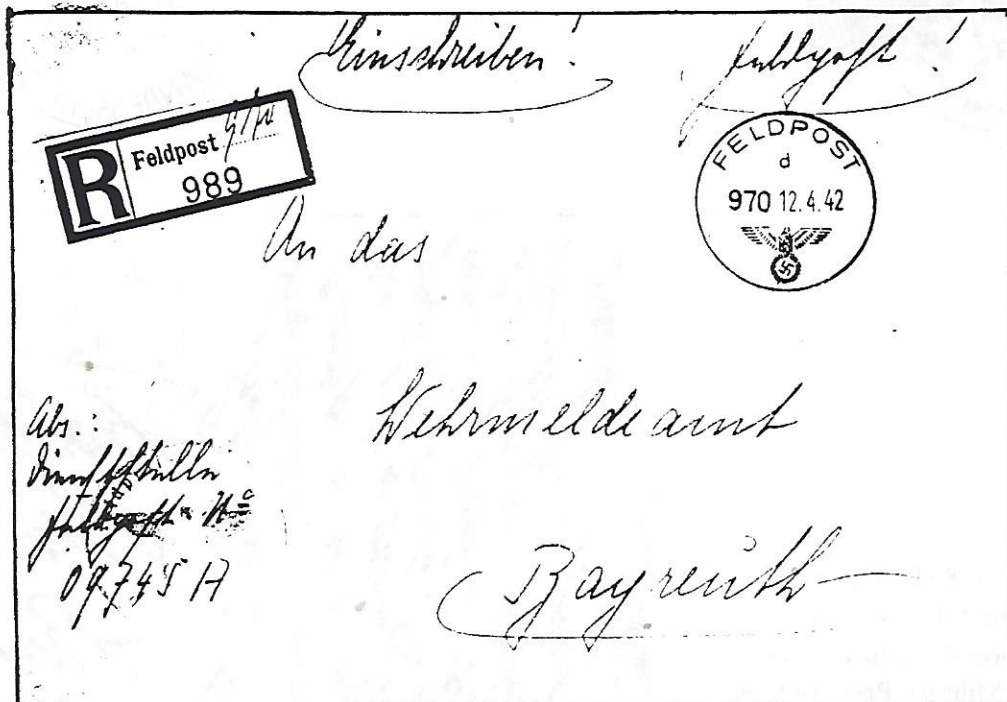 Einschreiben! Feldpost!
R Feldpost
989
FELDPOST
d
970 12.4.42
An das
Wehrmeldeamt
Bayreuth
Abs.:
Dienststelle
Feldpost- No
09745 A